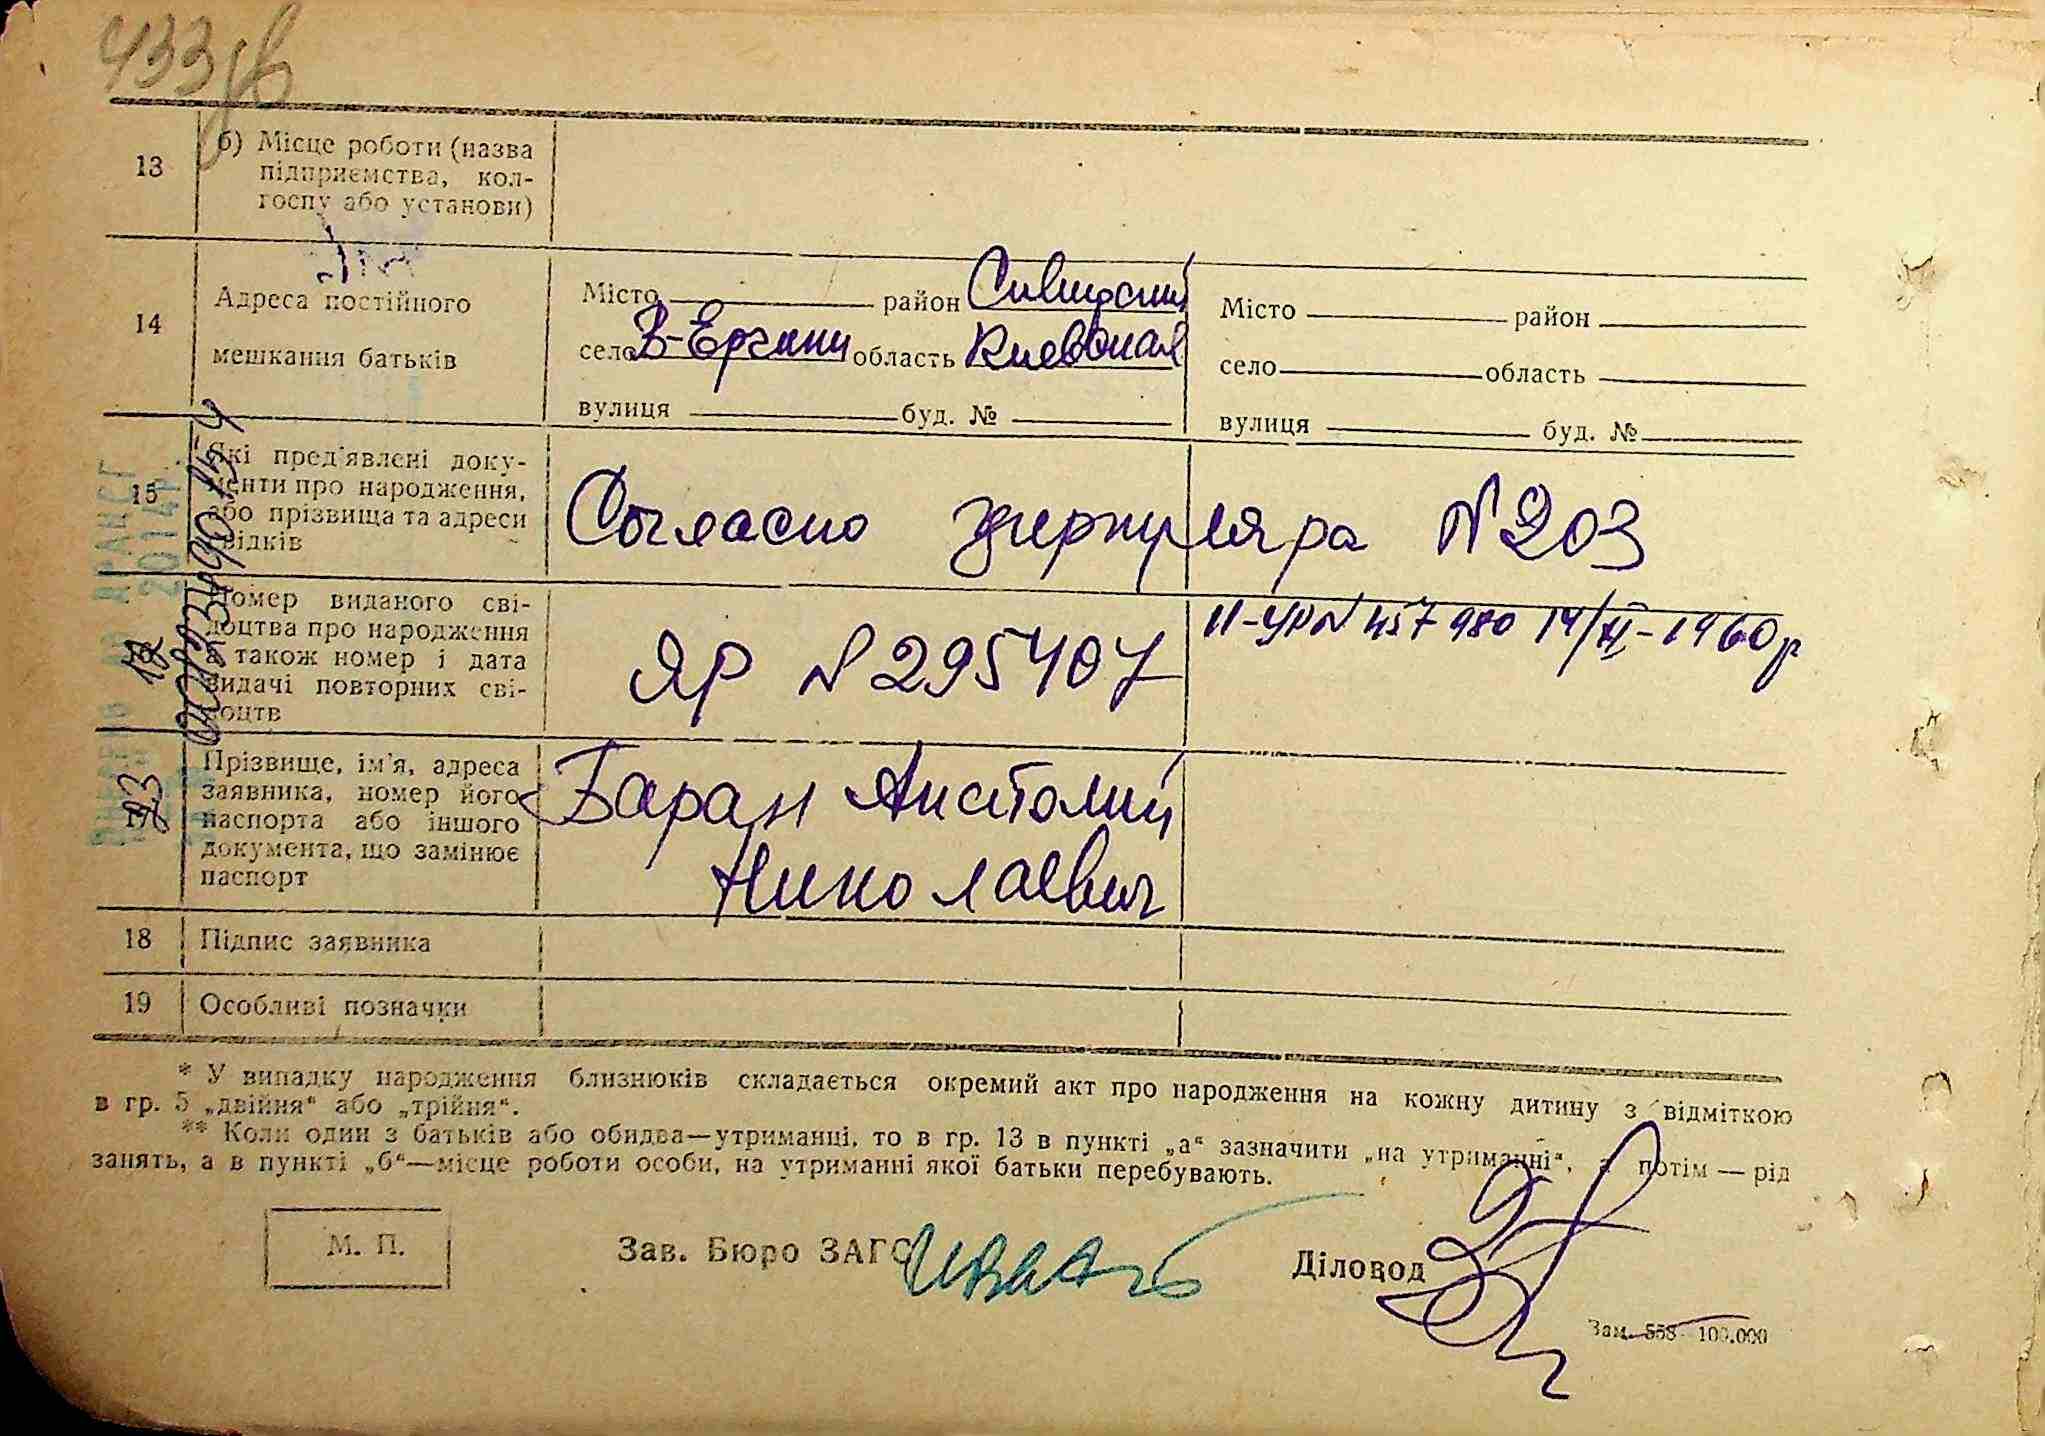 433 зв
13
б) Місце роботи (назва
підприємства, кол-
госпу або установи)
14
Адреса постійного
мешкання батьків
Місто район Сквирский
село В-Ерчики область Киевская
вулиця буд. №
Місто район
село область
вулиця буд. №
15
Які пред'явлені доку-
менти про народження,
або прізвища та адреси
свідків
Согласно циркуляра N 203
Номер виданого сві-
доцтва про народження
а також номер і дата
видачі повторних сві-
доцтв
ЯР N 295407
II-УР N 457980 14/XI-1960р
17
Прізвище, ім'я, адреса
заявника, номер його
паспорта або іншого
документа, що замінює
паспорт
Баран Анатолий
Николаевич
18 Підпис заявника
19 Особливі позначки
* У випадку народження близнюків складається окремий акт про народження на кожну дитину з відміткою
в гр. 5 „двійня“ або „трійня“.
** Коли один з батьків або обидва—утриманці, то в гр. 13 в пункті „а“ зазначити „на утриманні“, а потім — рід
занять, а в пункті „б“—місце роботи особи, на утриманні якої батьки перебувають.
М. П.
Зав. Бюро ЗАГС
Діловод
Зам. 558 100.000